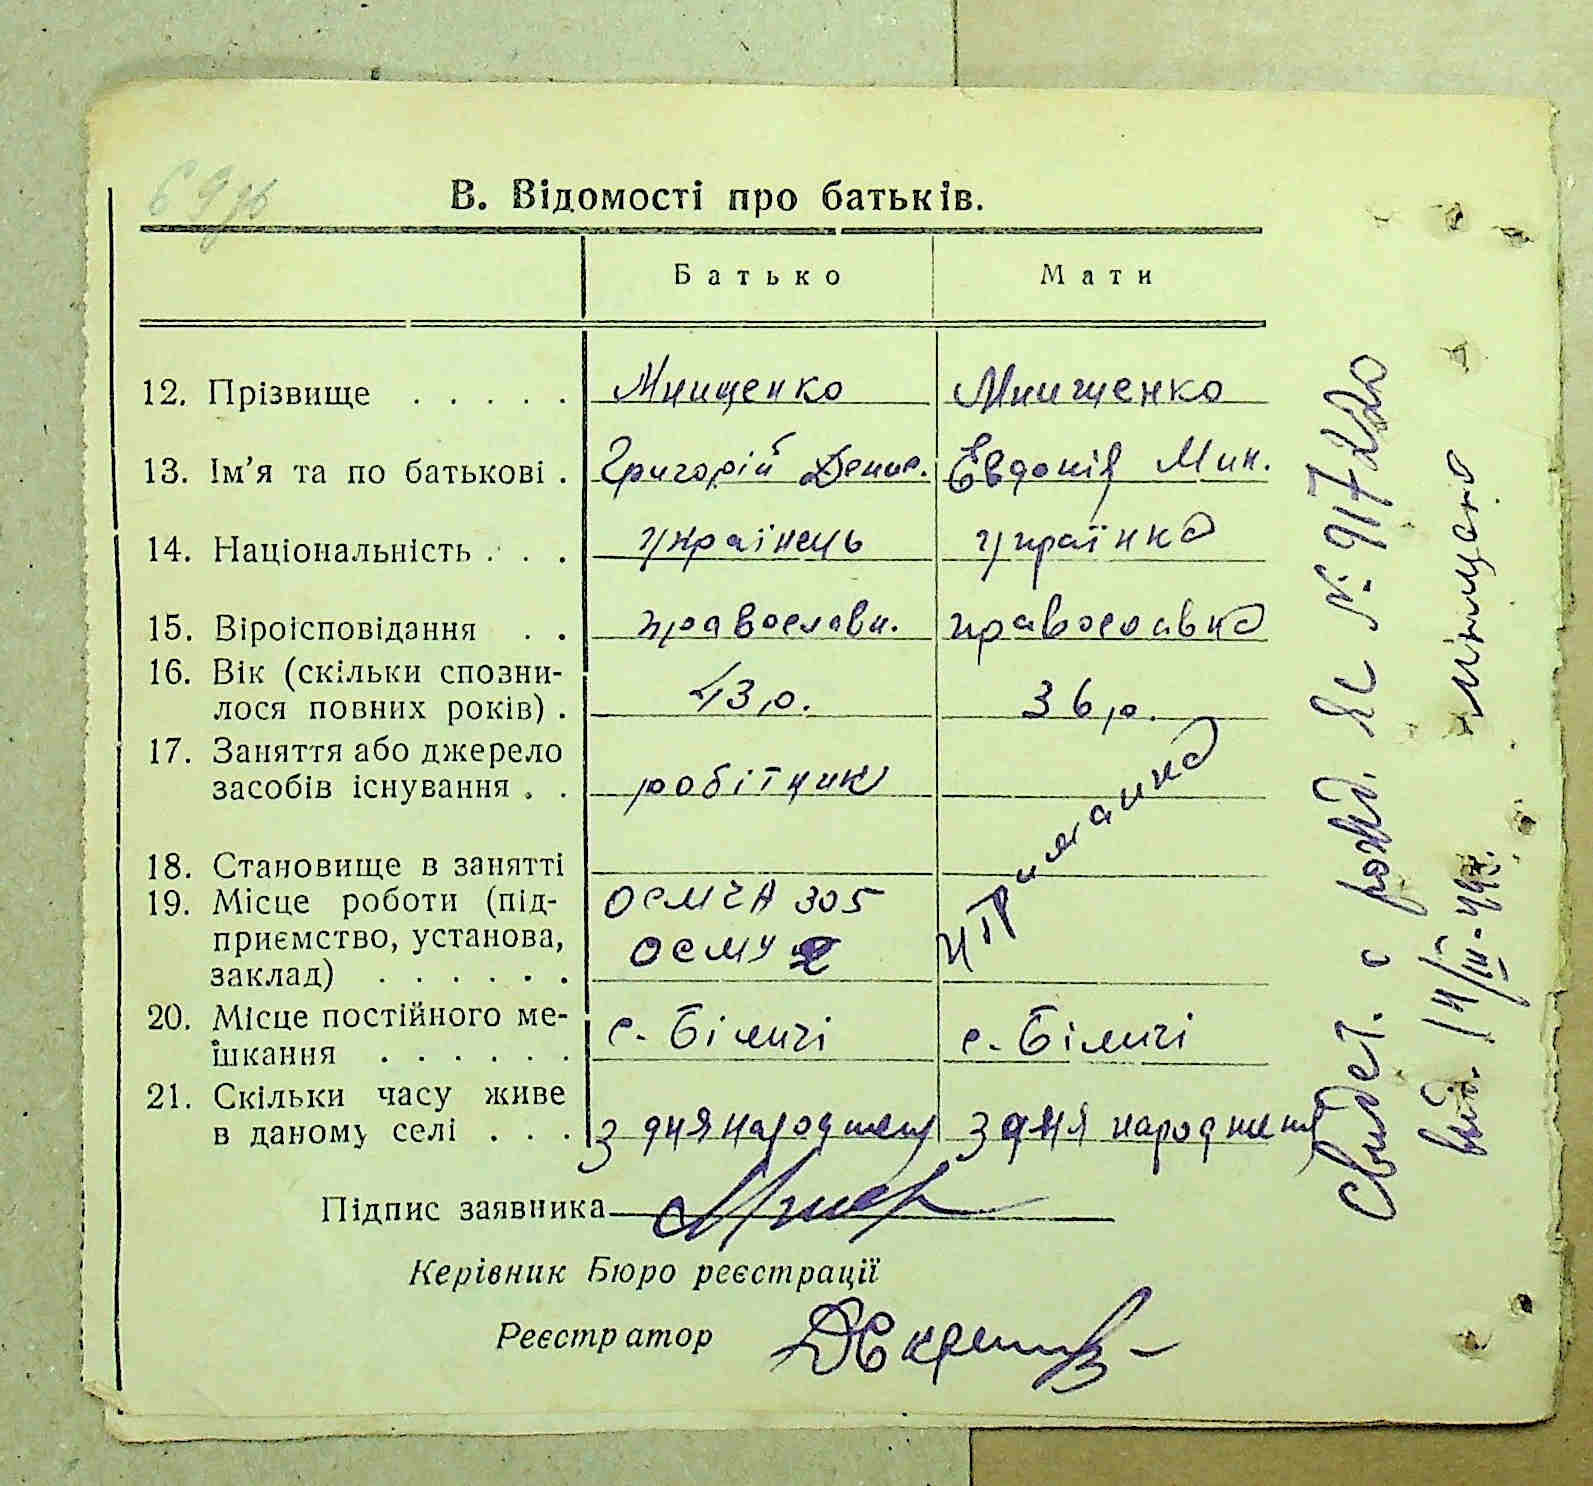 В. Відомості про батьків.
Батько Мати
12. Прізвище . . . . . Мищенко Мищенко
13. Ім’я та по батькові . Григорій Денис. Евдокія Мик.
14. Національність . . . українець українка
15. Віроісповідання . . православн. православна
16. Вік (скільки спозни-
лося повних років) . 43 р. 36 р.
17. Заняття або джерело
засобів існування . . робітник
18. Становище в занятті
19. Місце роботи (під- ОСМЧА 305
приємство, установа, ОСМУ
заклад) . . . . . .
20. Місце постійного ме-
шкання . . . . . . с. Біличі с. Біличі
21. Скільки часу живе
в даному селі . . . з дня народження з дня народження
Підпис заявника
Керівник Бюро реєстрації
Реєстратор
утриманка
Свидет. о рожд. № 917220
выд. 14/III-49г.